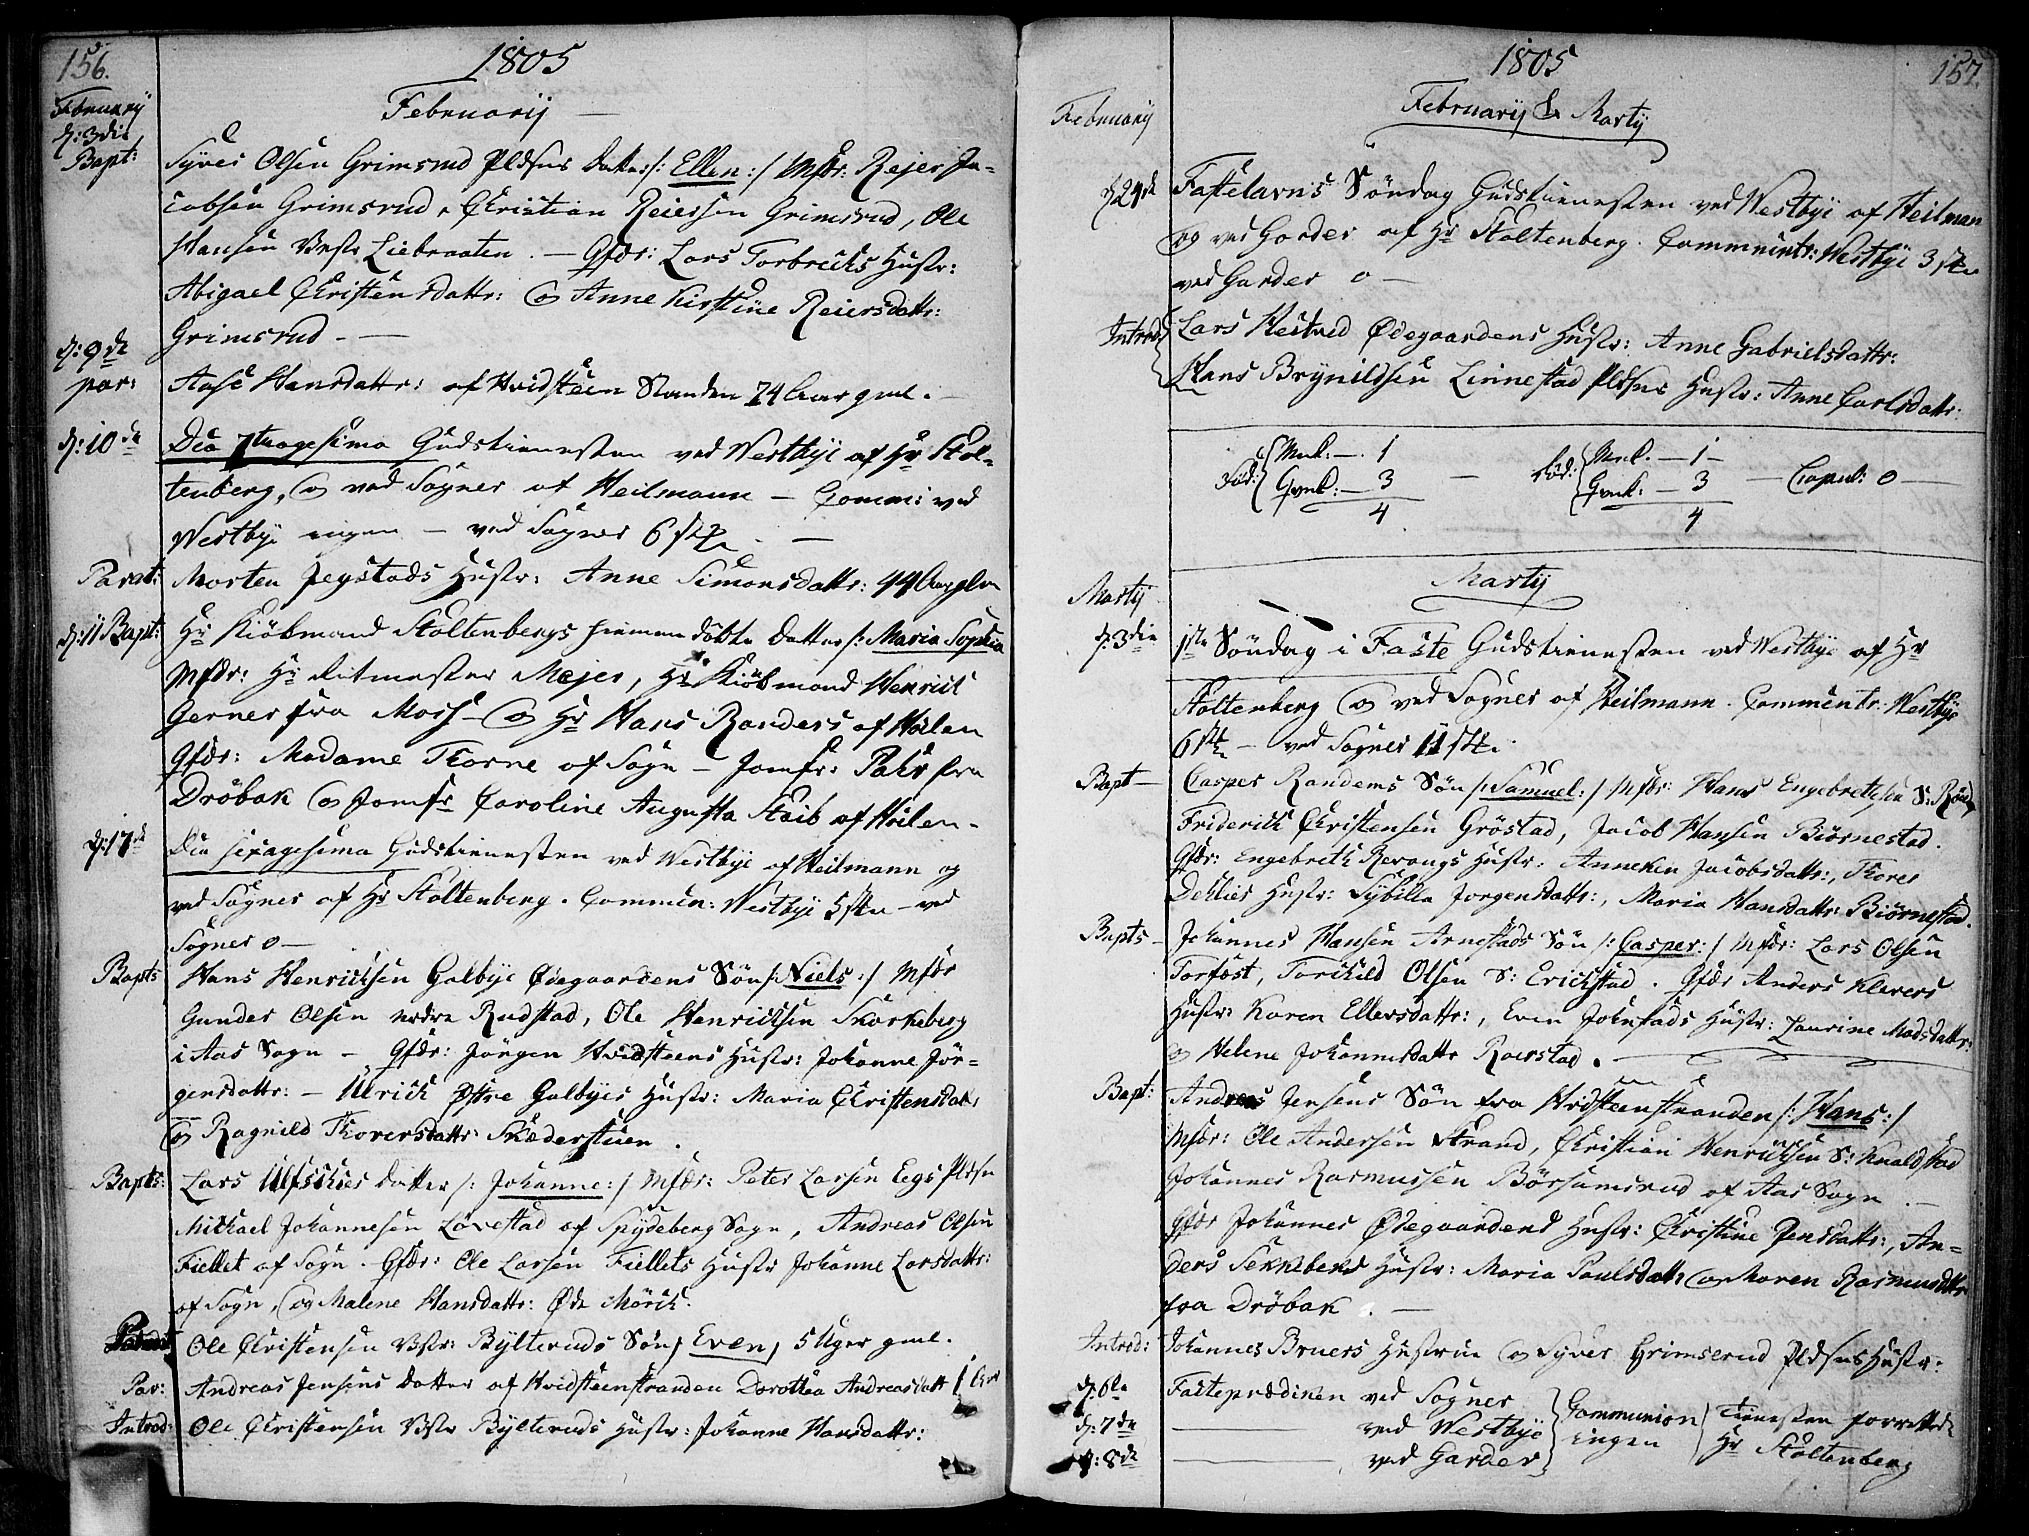 156.
1805
Februarij
Februarij
d: 3die
Bapt: Syver Olsen Grimsrud Pldsns datter /: Ellen :/ Mfdr: Rejer Ja-
cobsen Grimsrud, Christian Reiersen Grimsrud, Ole
Hansen Liebraaten. — Qfdr: Lars Torbrechs Hustr:
Abigael Christensdattr: og Anne Kirstine Reiersdattr:
Grimsrud. —
d: 9de
par: Aase Hansdattr: af Hvidsteen Stranden 74 Aar gml. —
d: 10de Dca 7tuagesima Gudstienesten ved Westbye af Hr Stol-
tenberg, og ved Sogner af Heilmann — Commu: ved
Westbye ingen — ved Sogner 6 stk. —
Parat: Morten Hustr: Anne Simonsdattr: 44 Aar glm
d: 11 Bapt: Hr Kiöbmand Stoltenbergs hiemme döbte datter /: Maria Sophia
Mfdr: Hr Ritmester Mejer, Hr Kiöbmand Henrich
Gerner fra Moss — og Hr Hans Randers af Hölen
Qfdr: Madame Thorne af Sogn — Jomfr: Pahr fra
Dröbak og Jomfr Caroline Augusta Staib af Hölen.
d: 17de Dca sexagesima Gudstienesten ved Westbye af Heilmann og
ved Sogner af Hr Stoltenberg. Commun: Westbye 5 stk — ved
Sogner 0 —
Bapts Hans Henrichsen Galbye Ødegaardens Sön /: Niels :/ Mfdr
Gunder Olsen nedre Rudstad, Ole Henrichsen Skarkeberg
i Aas Sogn — Qfdr: Jörgen Hvidsteens Hustr: Johanne Jör-
gensdattr: — Ulrich østre Galbyes Hustr: Maria Christensdat,
og Ragnild Thoversdattr: Skæderstuen.
Bapts: Lars datter /: Johanne :/ Mfdr: Peter Larsen Eegs Pldsn
Michael Johannesen Lövestad af Spydeberg Sogn, Andreas Olsen
Fiellet af Sogn. Qfdr: Ole Larsen Fiellets Hustr Johanne Larsdattr:
af Sogn, og Malene Hansdattr: Øde Mörch.
Ole Christensen Bylterud Sön / Even / 5 Uger gml.
Par: Andreas Jensens datter af Hvidsteenstranden Dorothea Andreasdattr 1 Aar
Introd: Ole Christensen Bylteruds Hustr: Johanne Hansdattr:
1805
157.
Februarij & Martij
Februarij
d 24de Fastelavns Söndag Gudstienesten ved Westbye af Heilman
og ved Garder af Hr Stoltenberg. Communik: Westbye 3 stk
ved Garder 0 —
Introd: Lars Ødegaardens Hustr: Anne Gabrielsdattr:
Hans Brynildsen Linnestad Pldsns Hustr: Anne Carlsdattr:
Föd: Mnk. — 1 Död: Mnk. — 1 —
Qvnk: — 3 — Qvnk: — 3 — Copul: 0 —
4. 4
Martij
Martij
d: 3die 1ste Söndag i Faste Gudstienesten ved Westbye af Hr
Stoltenberg og ved Sogner af Heilmann. Communtr: Westbye
6 stk — ved Sogner 11 stk.
Bapt — Casper Randems Sön /: Samuel :/ Mfdr: Hans Engebrethsen S:
Friderich Christensen Gröstad, Jacob Hansen Biörnestad.
Qfdr: Engebreth Revaugs Hustr: Anneken Jacobsdattr:, Thores
Dehlies Hustr: Sybilla Jorgensdattr:, Maria Hansdattr: Biörnestad.
Bapts — Johannes Hansen Arnestads Sön /: Casper :/ Mfdr: Lars Olsen
Torfost, Torchild Olsen S: Erichstad. Qfdr Anders Klevers
Hustr: Karen Ellersdattr:, Even Hustr: Laurine Madsdattr:
og Helene Johannesdattr Raerstad.
Bapt: Andreas Jensens Sön fra Hvidsteenstranden /: Hans :/
Mfdr: Ole Andersen Strand, Christian Henrichsen S:
Johannes Rasmussen Börsumsrud af Aas Sogn —
Qfdr Johannes Ødegaardend Hustr: Christine Jensdattr:, An-
ders Hustr: Maria Paulsdattr og Maren Rasmusdttr
fra Dröbak. —
Introd: Johannes Bruers Hustrue og Syver Grimserud Pldsns Hustr:
d: 6te Fasteprædiken ved Sogner
d: 7de — ved Westbye Communion Tienesten forrettede
d: 8de — ved Garder ingen Hr Stoltenberg